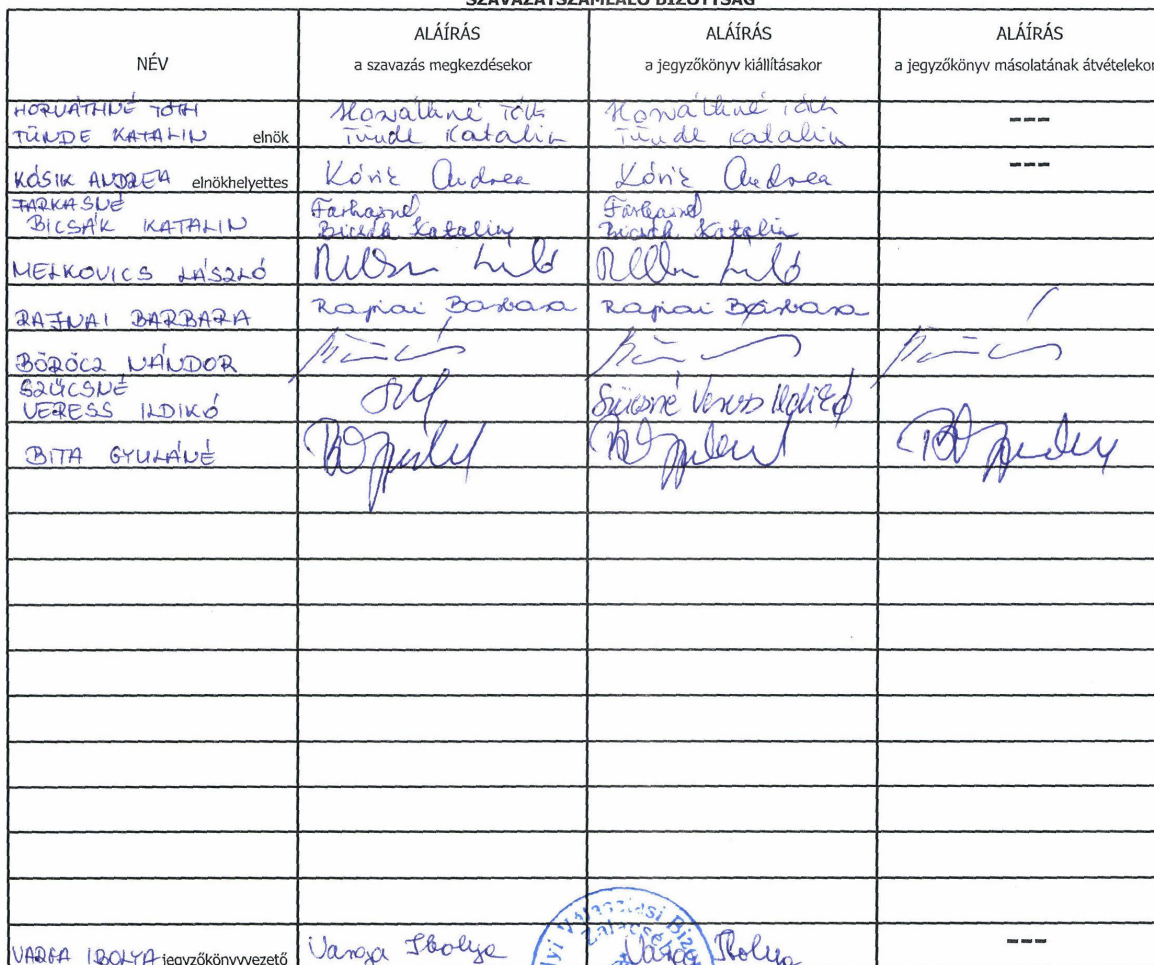 SZAVAZATSZÁMLÁLÓ BIZOTTSÁG
NÉV
ALÁÍRÁS
a szavazás megkezdésekor
ALÁÍRÁS
a jegyzőkönyv kiállításakor
ALÁÍRÁS
a jegyzőkönyv másolatának átvételekor
HORVÁTHNÉ TÓTH
TÜNDE KATALIN elnök
Horváthné Tóth
Tünde Katalin
Horváthné Tóth
Tünde Katalin
---
KÓSIK ANDREA elnökhelyettes
Kósik Andrea
Kósik Andrea
---
FARKASNÉ
BICSÁK KATALIN
Farkasné
Bicsák Katalin
Farkasné
Bicsák Katalin
MELKOVICS LÁSZLÓ
RAJNAI BARBARA
Rajnai Barbara
Rajnai Barbara
BÖRÖCZ NÁNDOR
SZŰCSNÉ
VERESS ILDIKÓ
Szűcsné Veress Ildikó
BITA GYULÁNÉ
VARGA IBOLYA jegyzőkönyvvezető
Varga Ibolya
Varga Ibolya
---